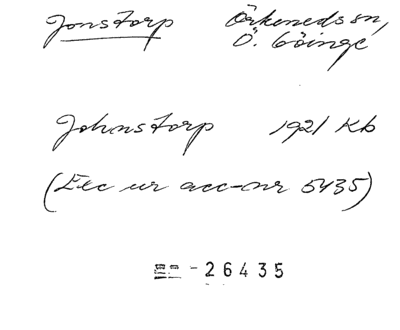 Jonstorp Örkeneds sn,
Ö. Göinge
Johnstorp 1921 Kb
(Exc ur acc-nr 5435)
-26435